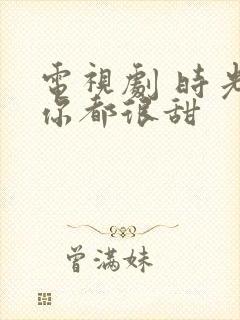 電視劇 時光
你都很甜
曾滿妹